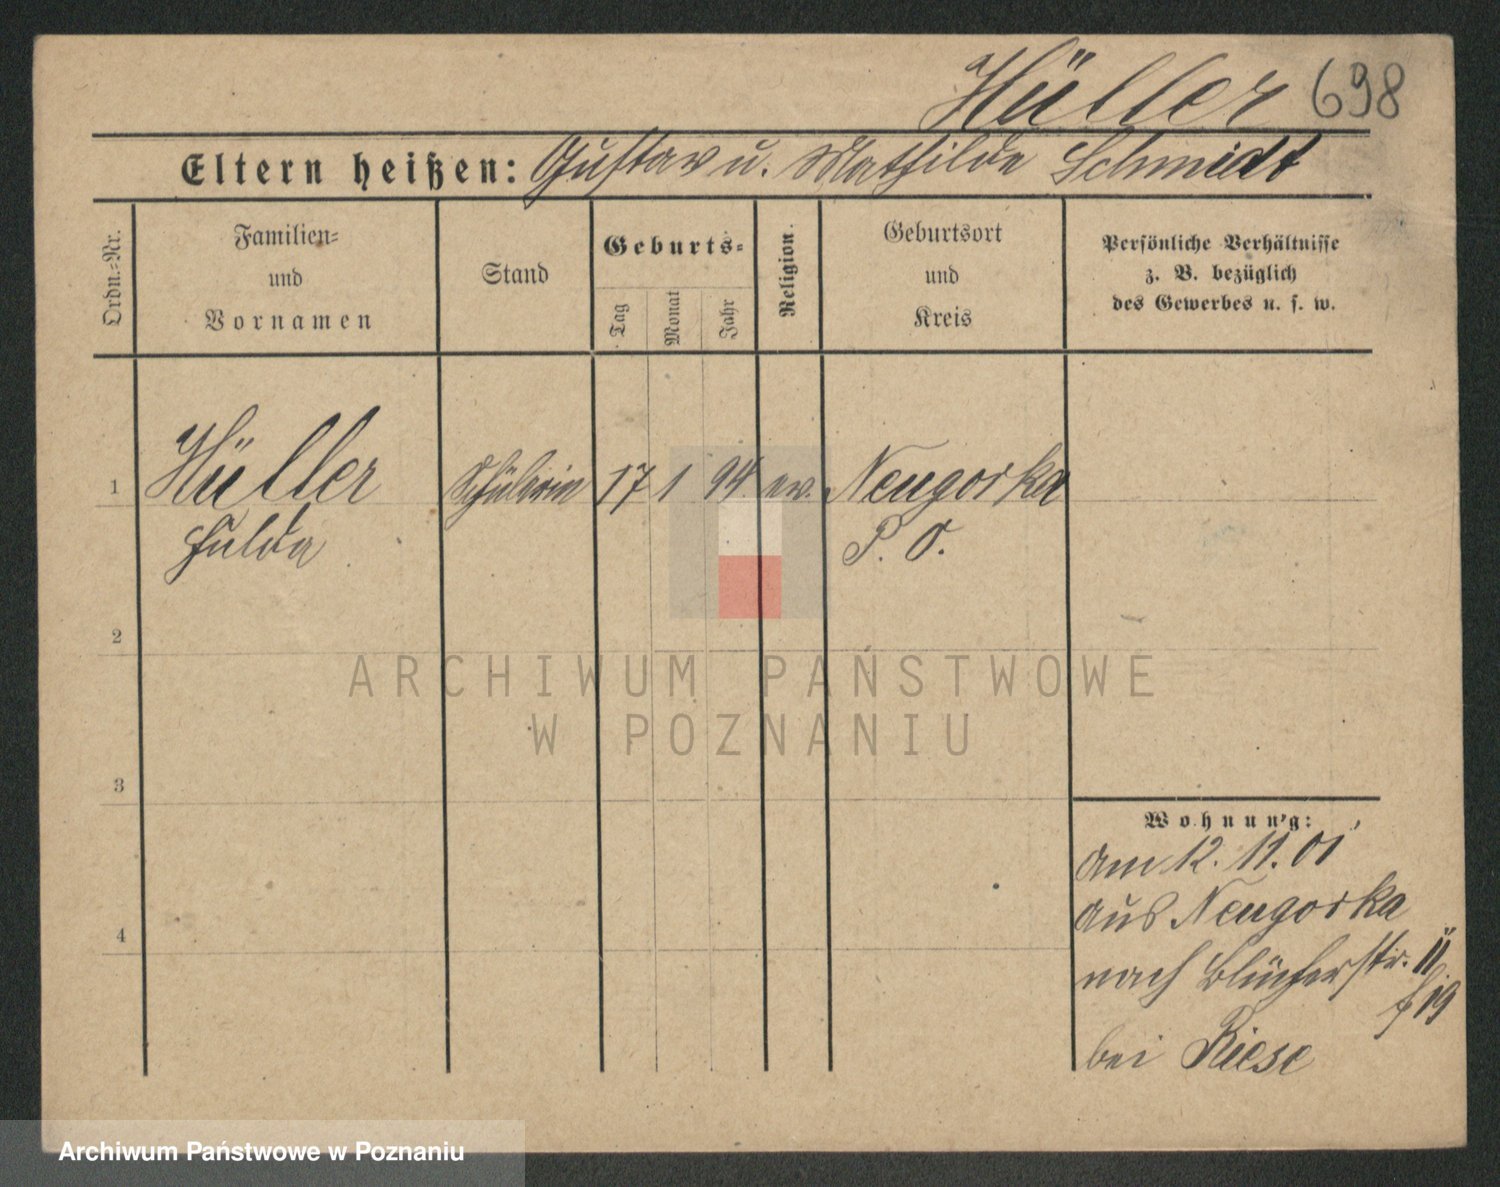 Hüller 698
Eltern heißen: Gustav u. Mathilde Schmidt
Ordn.=Nr.
Familien=
und
Vornamen
Stand
Geburts=
Tag
Monat
Jahr
Religion.
Geburtsort
und
Kreis
Persönliche Verhältnisse
z. B. bezüglich
des Gewerbes u. s. w.
1 Hüller Schülerin 17 1 94 ev. Neugorka
Hulda P. O.
2
3
4
ARCHIWUM PAŃSTWOWE
W POZNANIU
Wohnung:
am 12. 11. 01
aus Neugorka
nach Blücherstr. 11
19
bei Riese
Archiwum Państwowe w Poznaniu